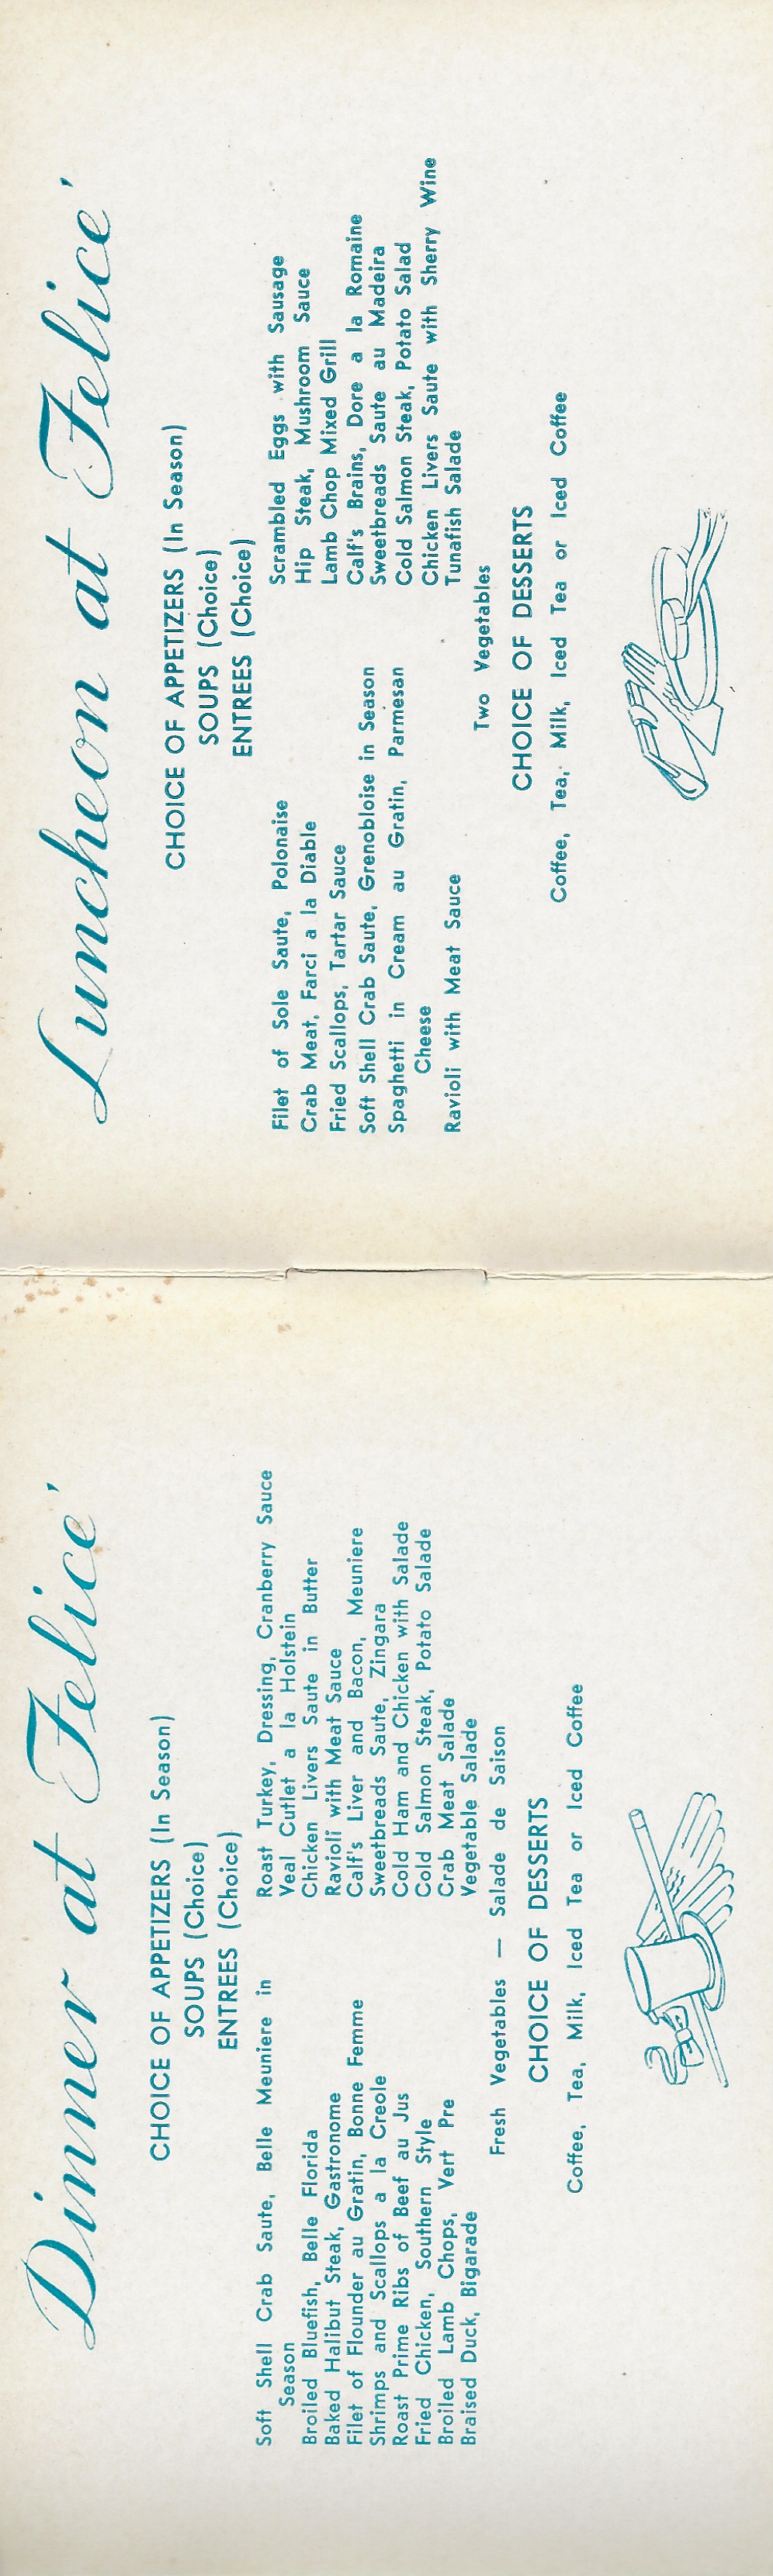 Dinner at Felice'
CHOICE OF APPETIZERS (In Season)
SOUPS (Choice)
ENTREES (Choice)
Soft Shell Crab Saute, Belle Meuniere in
Season
Broiled Bluefish, Belle Florida
Baked Halibut Steak, Gastronome
Filet of Flounder au Gratin, Bonne Femme
Shrimps and Scallops a la Creole
Roast Prime Ribs of Beef au Jus
Fried Chicken, Southern Style
Broiled Lamb Chops, Vert Pre
Braised Duck, Bigarade
Roast Turkey, Dressing, Cranberry Sauce
Veal Cutlet a la Holstein
Chicken Livers Saute in Butter
Ravioli with Meat Sauce
Calf's Liver and Bacon, Meuniere
Sweetbreads Saute, Zingara
Cold Ham and Chicken with Salade
Cold Salmon Steak, Potato Salade
Crab Meat Salade
Vegetable Salade
Fresh Vegetables — Salade de Saison
CHOICE OF DESSERTS
Coffee, Tea, Milk, Iced Tea or Iced Coffee
Luncheon at Felice'
CHOICE OF APPETIZERS (In Season)
SOUPS (Choice)
ENTREES (Choice)
Filet of Sole Saute, Polonaise
Crab Meat, Farci a la Diable
Fried Scallops, Tartar Sauce
Soft Shell Crab Saute, Grenobloise in Season
Spaghetti in Cream au Gratin, Parmesan
Cheese
Ravioli with Meat Sauce
Scrambled Eggs with Sausage
Hip Steak, Mushroom Sauce
Lamb Chop Mixed Grill
Calf's Brains, Dore a la Romaine
Sweetbreads Saute au Madeira
Cold Salmon Steak, Potato Salad
Chicken Livers Saute with Sherry Wine
Tunafish Salade
Two Vegetables
CHOICE OF DESSERTS
Coffee, Tea, Milk, Iced Tea or Iced Coffee